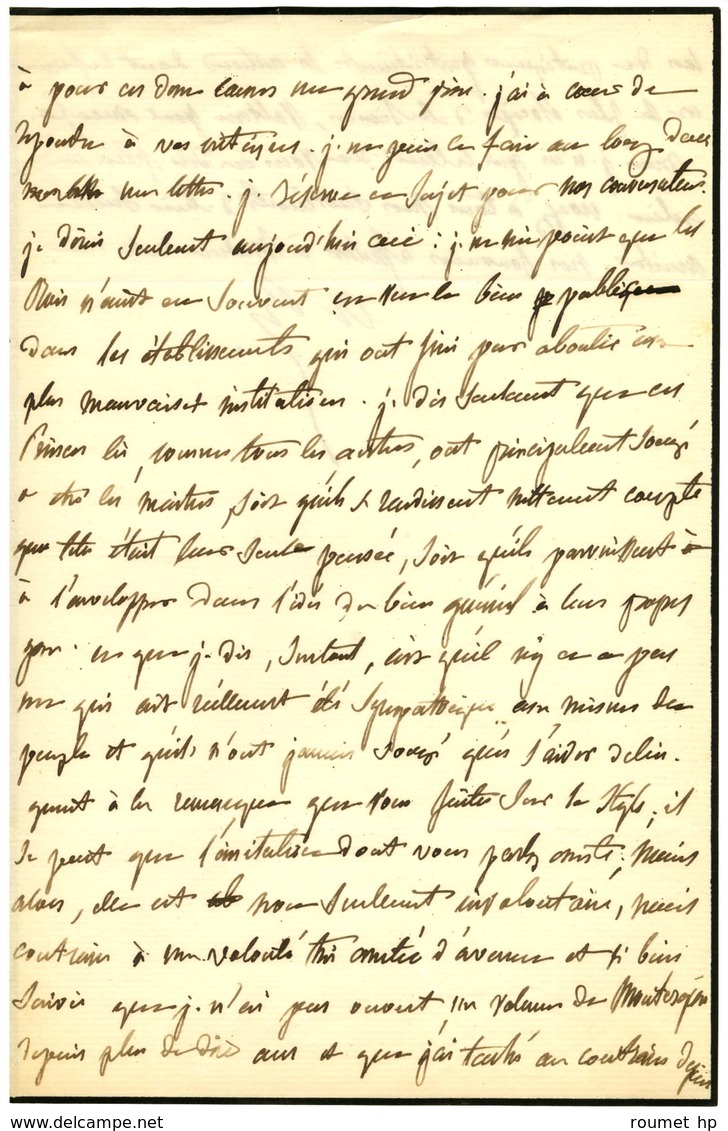 a pour ces deux causes une grand prix. j'ai à cœur de
répondre à vos critiques. je ne puis le faire au long dans
une lettre. je réserve ce sujet pour nos conversations.
je dirai seulement aujourd'hui ceci : je ne nie point que les
Rois n'aient eu souvent en vue le bien public
dans les établissements qui ont fini par aboutir aux
plus mauvaises institutions. je dis seulement que ces
Princes là, comme tous les autres, ont principalement songé
à être les maîtres, soit qu'ils se rendissent nettement compte
que telle était leur seule pensée, soit qu'ils parvinssent à
à l'envelopper dans l'idée du bien général à leurs propres
yeux. ce que je dis, surtout, c'est qu'il n'y en a pas
un qui ait réellement été sympathique aux misères du
peuple et qu'ils n'ont jamais songé qu'à s'aider de lui.
quant à la remarque que vous faites sur le style, il
se peut que l'imitation dont vous parlez existe ; mais
alors, elle est non seulement involontaire, mais
contraire à une volonté très arrêtée d'avance et si bien
suivie que je n'ai pas ouvert un volume de Montesquieu
depuis plus de dix ans et que j'ai tâché au contraire depuis
© roumet hp